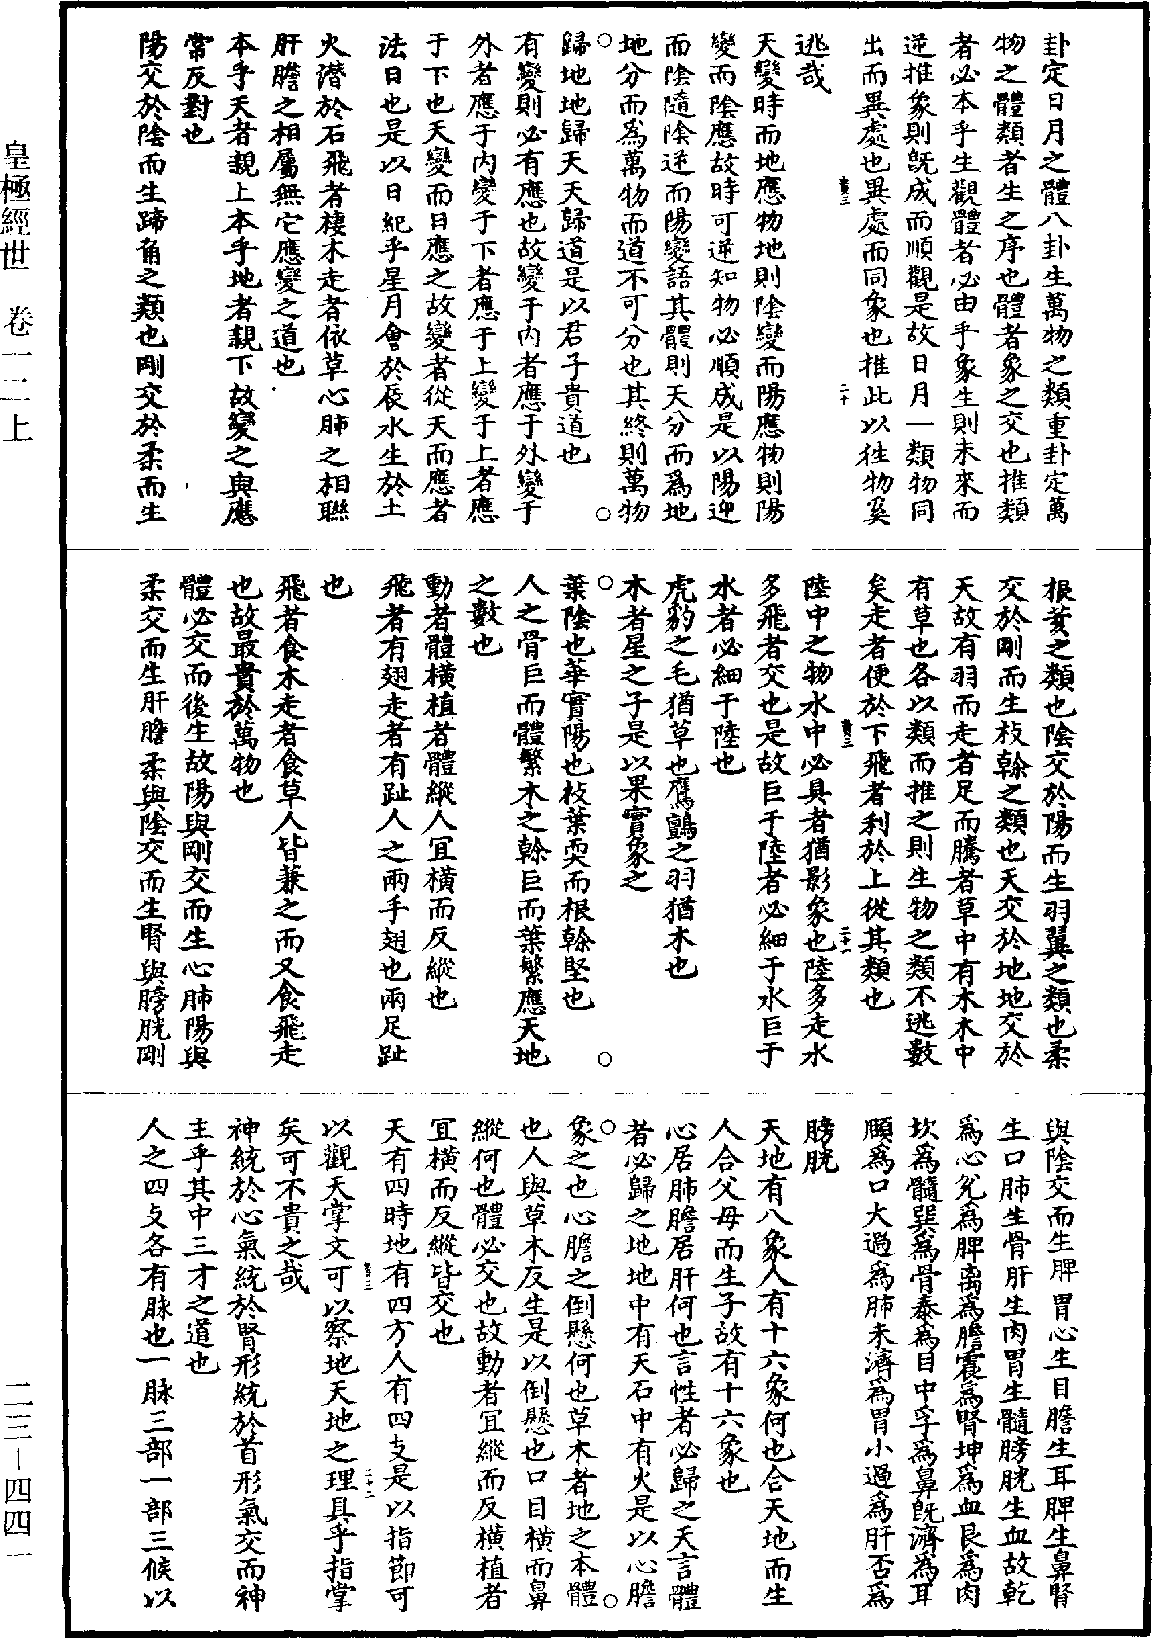 卦定日月之體八卦生萬物之類重卦定萬
物之體類者生之序也體者象之交也推類
者必本乎生觀體者必由乎象生則未來而
逆推象則既成而順觀是故日月一類物同
出而異處也異處而同象也推此以往物奚
逃哉
天變時而地應物地則陰變而陽應物則陽
變而陰應故時可逆知物必順成是以陽迎
而陰隨陰逆而陽變語其體則天分而為地
地分而為萬物而道不可分也其終則萬物
歸地地歸天天歸道是以君子貴道也
有變則必有應也故變于內者應于外變于
外者應于內變于下者應于上變于上者應
于下也天變而日應之故變者從天而應者
法日也是以日紀乎星月會於辰水生於土
火潛於石飛者棲木走者依草心肺之相聯
肝膽之相屬無它應變之道也
本乎天者親上本乎地者親下故變之與應
常反對也
陽交於陰而生蹄角之類也剛交於柔而生
根荄之類也陰交於陽而生羽翼之類也柔
交於剛而生枝榦之類也天交於地地交於
天故有羽而走者足而騰者草中有木木中
有草也各以類而推之則生物之類不逃數
矣走者便於下飛者利於上從其類也
陸中之物水中必具者猶影象也陸多走水
多飛者交也是故巨于陸者必細于水巨于
水者必細于陸也
虎豹之毛猶草也鷹鸇之羽猶木也
木者星之子是以果實象之
葉陰也華實陽也枝葉耎而根榦堅也
人之骨巨而體繁木之榦巨而葉繁應天地
之數也
動者體橫植者體縱人宜橫而反縱也
飛者有翅走者有趾人之兩手翅也兩足趾
也
飛者食木走者食草人皆兼之而又食飛走
也故最貴於萬物也
體必交而後生故陽與剛交而生心肺陽與
柔交而生肝膽柔與陰交而生腎與膀胱剛
與陰交而生脾胃心生目膽生耳脾生鼻腎
生口肺生骨肝生肉胃生髓膀胱生血故乾
為心兌為脾離為膽震為腎坤為血艮為肉
坎為髓巽為骨泰為目中孚為鼻既濟為耳
頤為口大過為肺未濟為胃小過為肝否為
膀胱
天地有八象人有十六象何也合天地而生
人合父母而生子故有十六象也
心居肺膽居肝何也言性者必歸之天言體
者必歸之地地中有天石中有火是以心膽
象之也心膽之倒懸何也草木者地之本體
也人與草木反生是以倒懸也口目橫而鼻
縱何也體必交也故動者宜縱而反橫植者
宜橫而反縱皆交也
天有四時地有四方人有四支是以指節可
以觀天掌文可以察地天地之理具乎指掌
矣可不貴之哉
神統於心氣統於腎形統於首形氣交而神
主乎其中三才之道也
人之四支各有脉也一脉三部一部三候以
皇極經世　卷一二上
二三－四四一